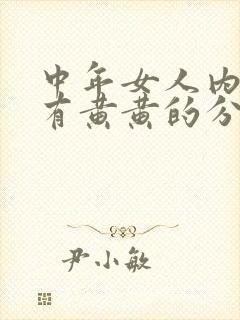 中年女人内
有黄黄的分
尹小敏